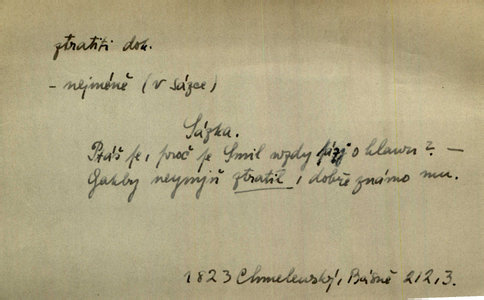 ztratiti dok.
- nejméně (v sázce)
Sázka.
Ptáš se, proč se Smil wzdy sází o hlawu? —
Gakby neymíň ztratil, dobře známo mu.
1823 Chmelenský, Básně 212, 3.